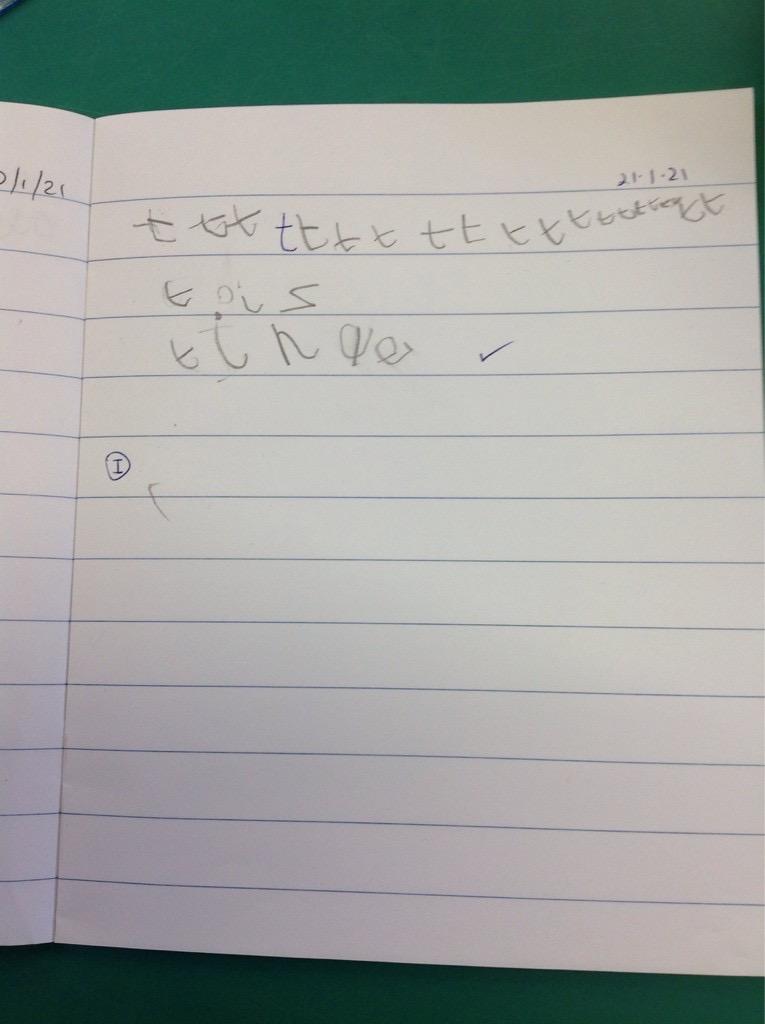 0/1/21
21.1.21
t t t t t t t t t t t t t t t t t t t t
t i s
t i n
I